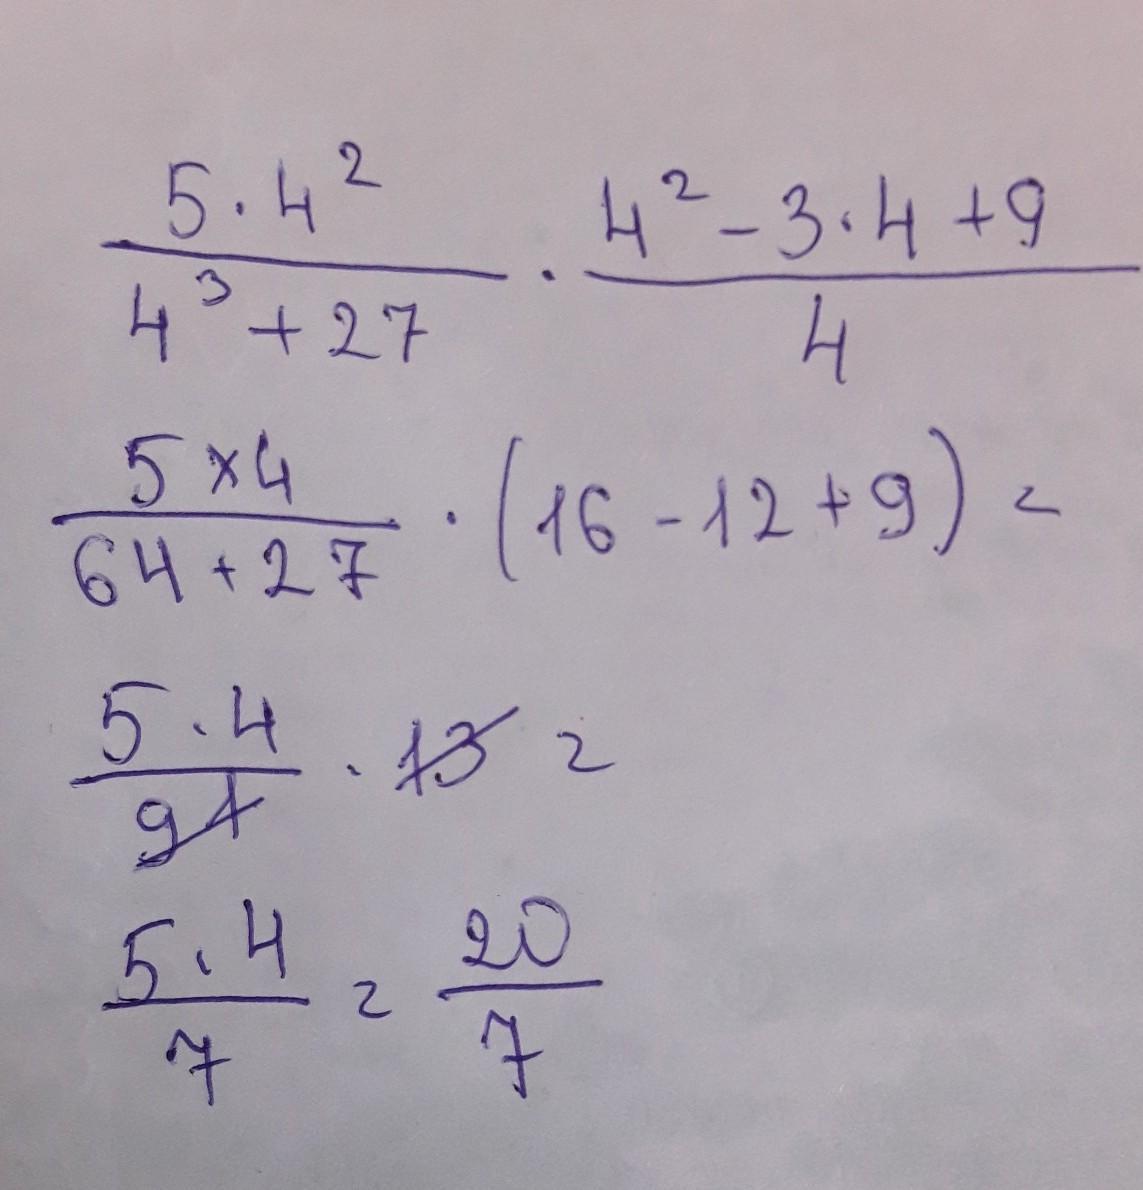 5·4² / 4³+27 · 4²-3·4+9 / 4
5×4 / 64+27 · (16-12+9) =
5·4 / 91 · 13 =
5·4 / 7 = 20 / 7